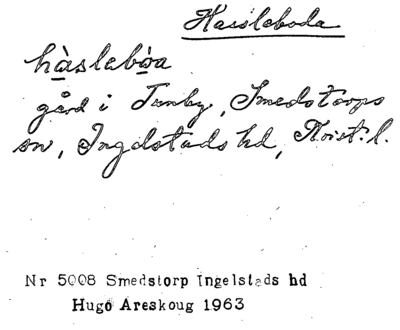 Hassleboda
hàslebǫa
gård i Tunby, Smedstorps
sn, Ingelstads hd, Krist. l.
Nr 5008 Smedstorp Ingelstads hd
Hugo Areskoug 1963